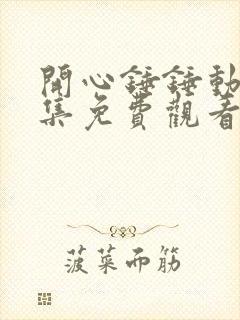 開心錘錘動
集免費觀看
菠菜而筋